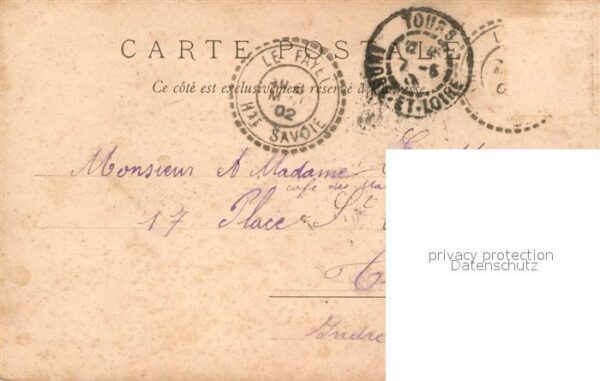 CARTE POSTALE
Ce côté est exclusivement réservé à l'adresse
LE FAYET
02
Hte SAVOIE
TOURS
INDRE-ET-LOIRE
Monsieur & Madame
café du
17 Place St
Indre
privacy protection
Datenschutz